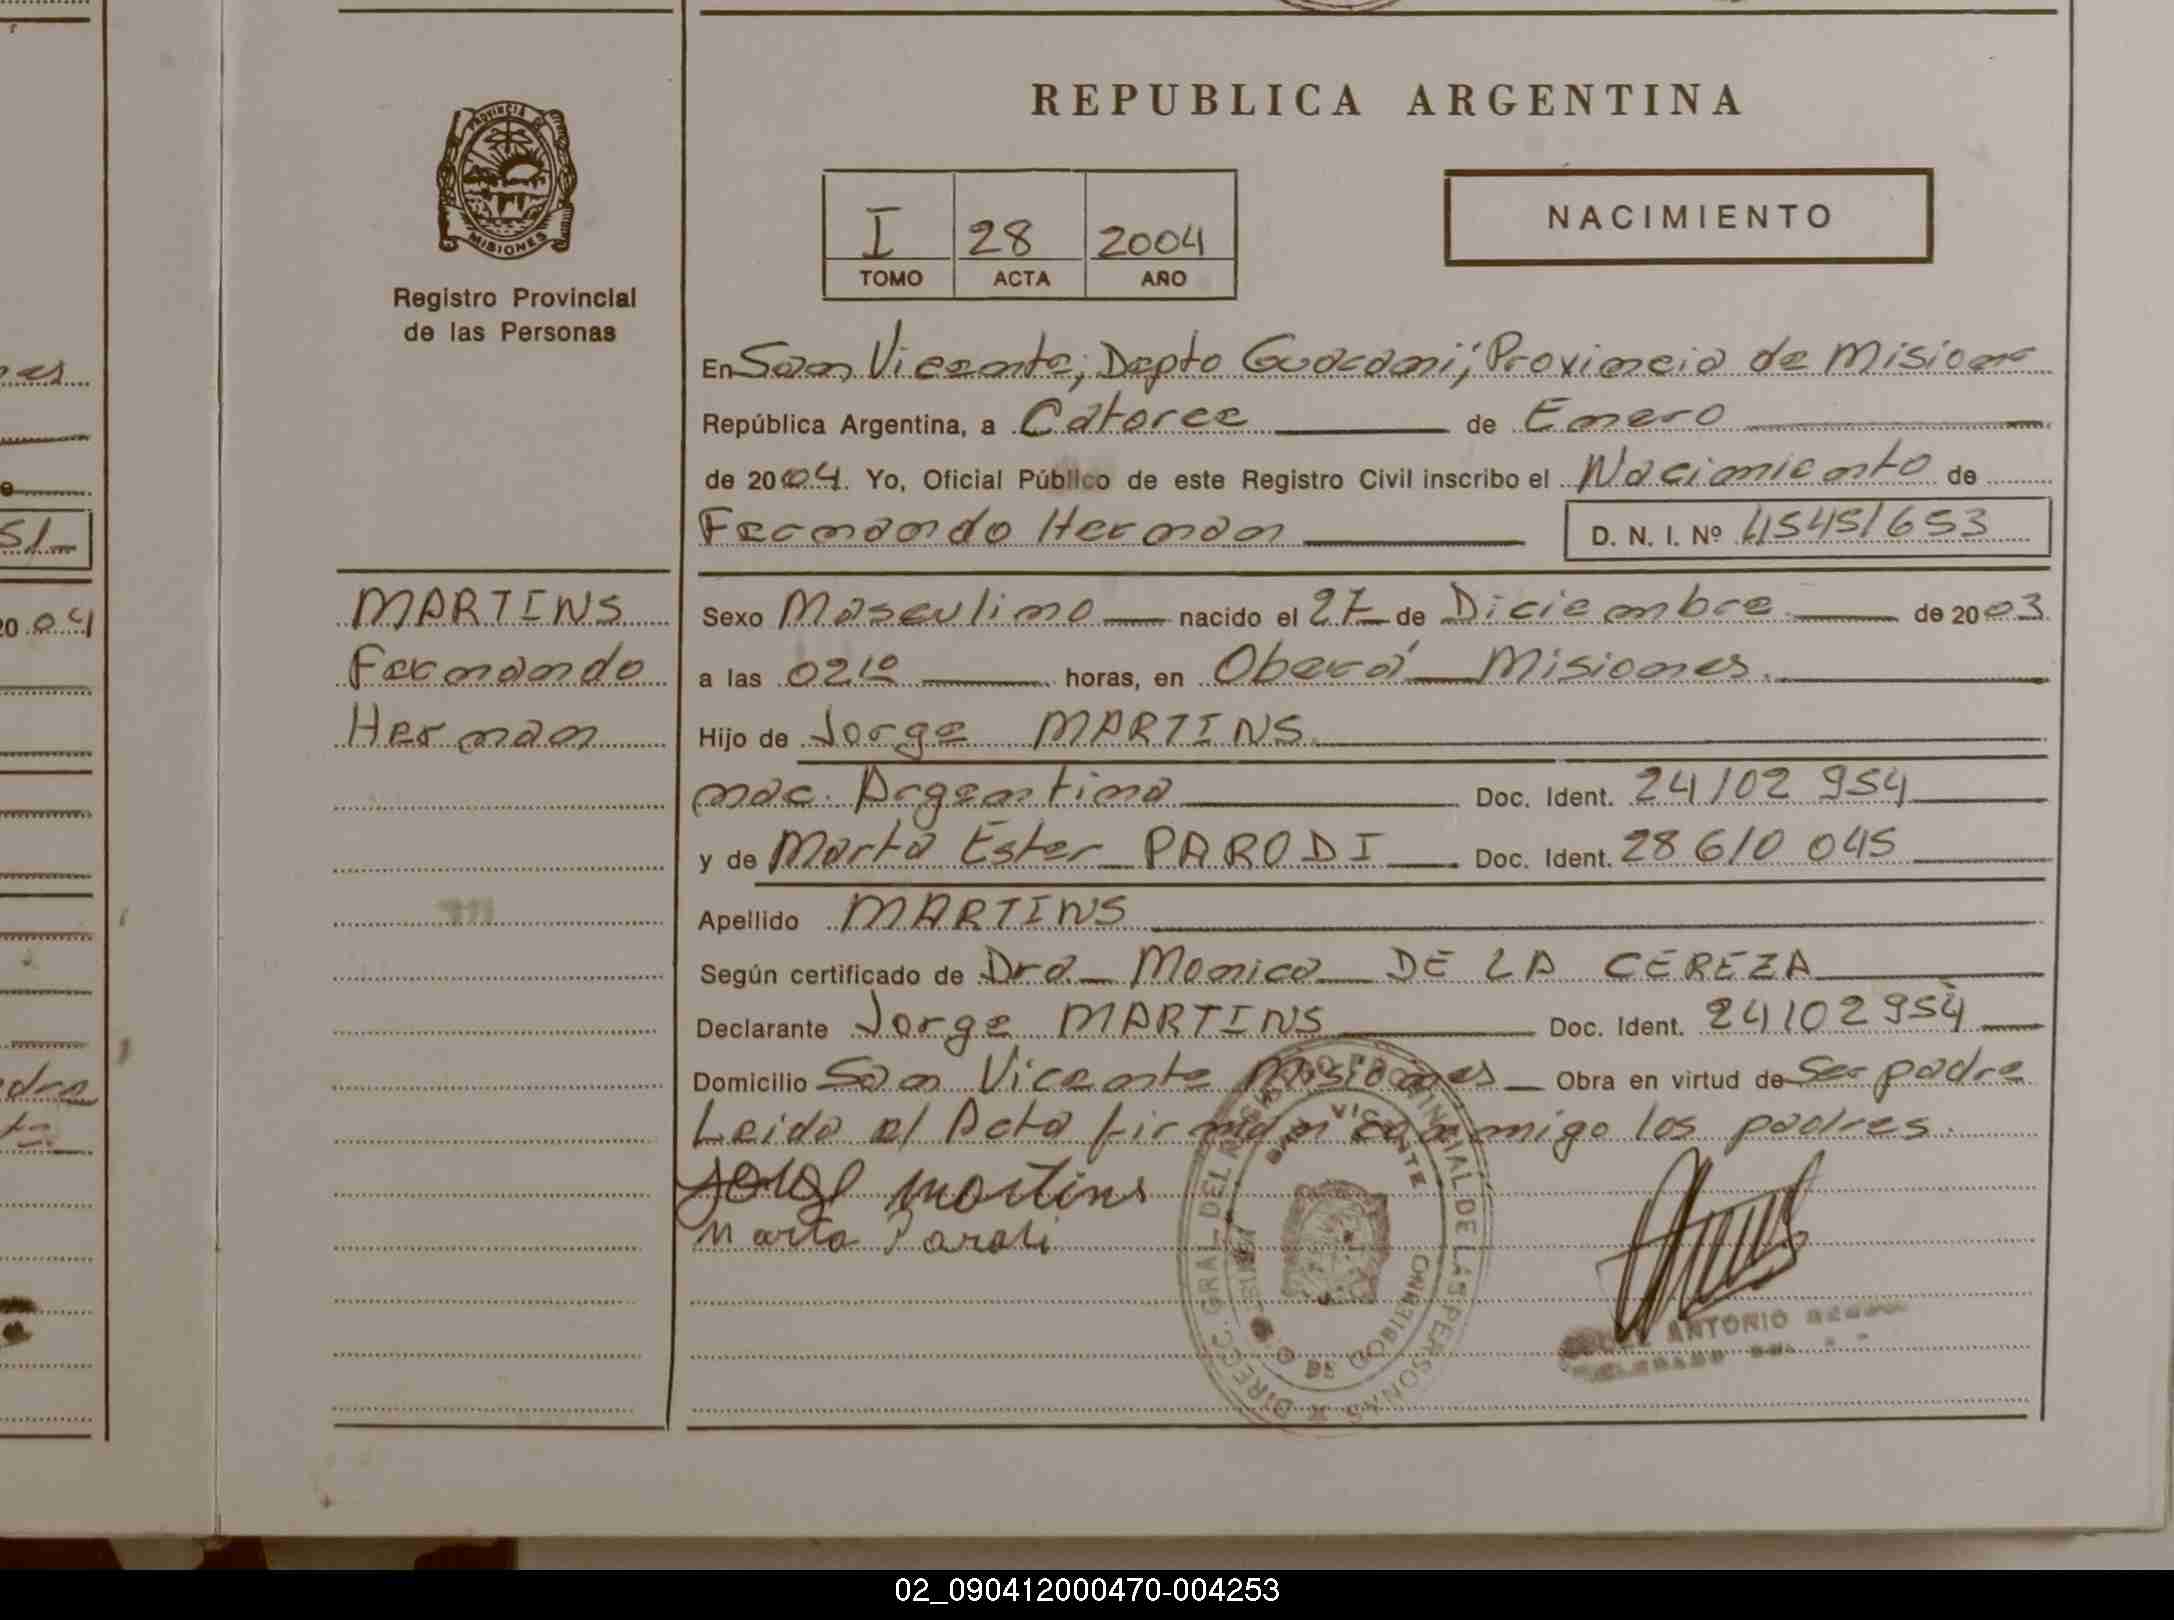 REPUBLICA ARGENTINA
PROVINCIA DE
MISIONES
Registro Provincial
de las Personas
I 28 2004
TOMO ACTA AÑO
NACIMIENTO
En San Vicente; Depto Guaraní; Provincia de Misiones
República Argentina, a Catorce de Enero
de 2004. Yo, Oficial Público de este Registro Civil inscribo el Nacimiento de
Fernando Hernan D. N. I. Nº 45451653
MARTINS
Fernando
Hernan
Sexo Masculino nacido el 27 de Diciembre de 2003
a las 02,10 horas, en Oberá Misiones.
Hijo de Jorge MARTINS
nac. Argentina Doc. Ident. 24102 954
y de Marta Ester PARODI Doc. Ident. 28610 045
Apellido MARTINS
Según certificado de Dra Monica DE LA CEREZA
Declarante Jorge MARTINS Doc. Ident. 24102954
Domicilio San Vicente Misiones Obra en virtud de Ser padre
Leida el Acta firman conmigo los padres.
Jorge Martins
Marta Parodi
DIRECC. GRAL. DEL REGISTRO PROVINCIAL DE LAS PERSONAS
SAN VICENTE
ANTONIO
02_090412000470-004253